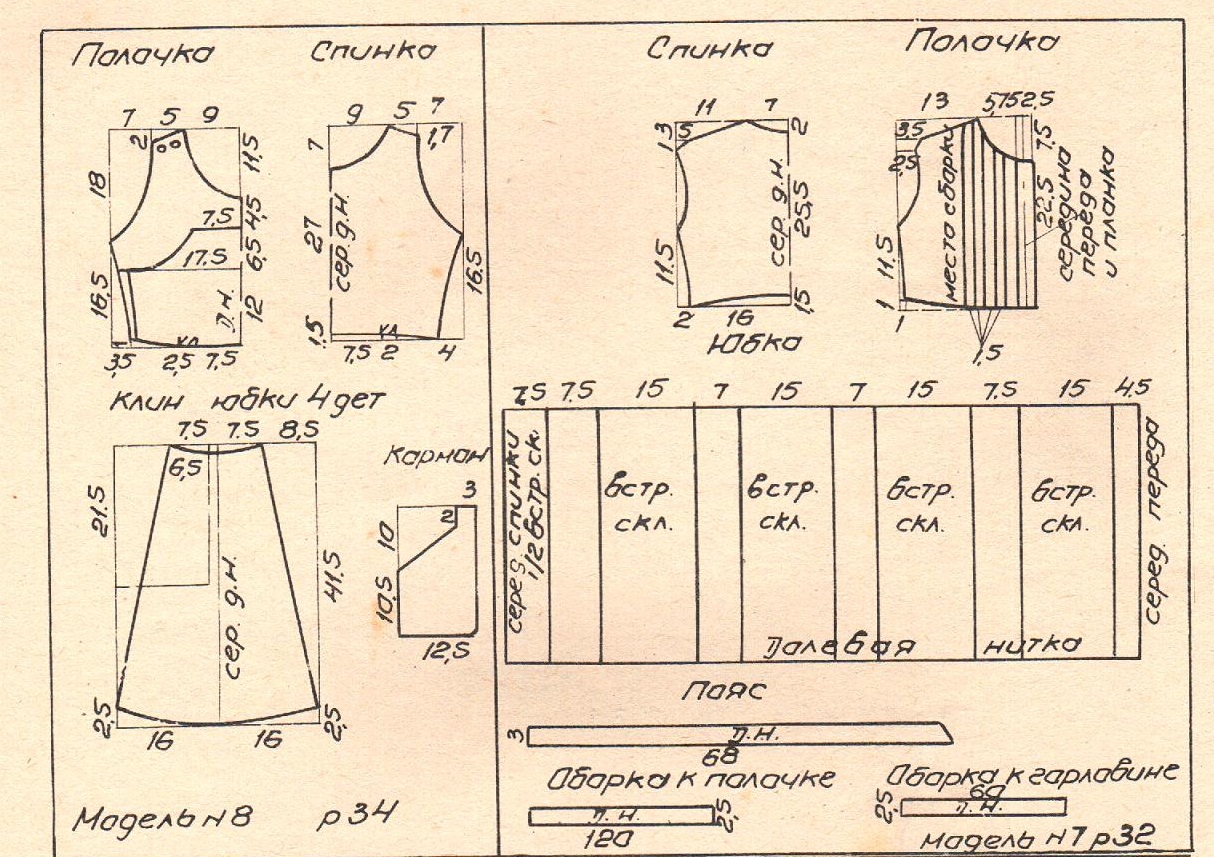 Полочка
Спинка
7 5 9
2
18
11,5
4,5
7,5
6,5
17.5
16,5
Д.Н.
12
3,5 2,5 7,5
9 5 7
1,7
7
27
сер. д.н.
16.5
1.5
7,5 2 4
Клин юбки 4 дет
7.5 7.5 8,5
6,5
21.5
сер. д.н.
41.5
2,5
16 16
2,5
Карман
3
2
10
10.5
12,5
Модель N8 р 34
Спинка
Полочка
11 7
1.3
5
2
сер. д.н.
25,5
11.5
1.5
2 16
13 5,75 2,5
3,5
2,5
7,5
места сборки
22,5
середина
переда
и планка
11.5
1
1
1,5
Юбка
7.5 7.5 15 7 15 7 15 7.5 15 4.5
серед. спинки
1/2 встр. ск.
встр.
скл.
встр.
скл.
встр.
скл.
встр.
скл.
серед. переда
Долевая нитка
Пояс
3
Д.Н.
68
Оборка к полочке
Д.Н.
2,5
120
Оборка к горловине
60
2,5
Д.Н.
Модель N7 р 32